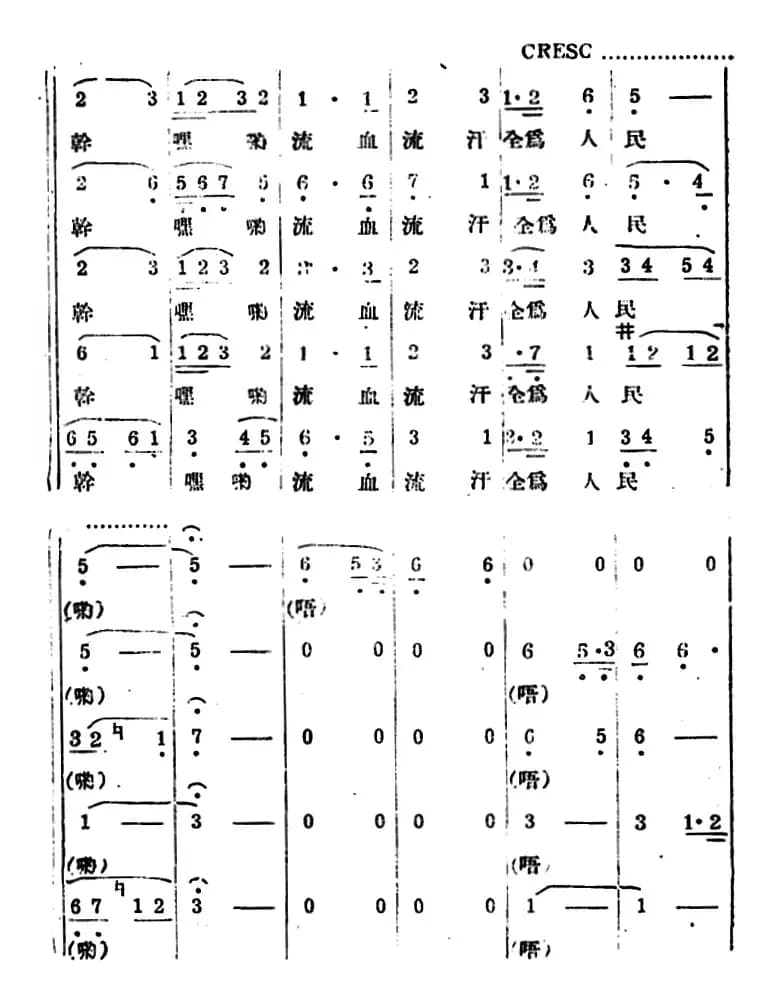 CRESC ....................
2 3 1 2 3 2 1 · 1 2 3 1 · 2 6 5 —
幹 嘿 喲 流 血 流 汗 全爲 人 民
2 6 5 6 7 5 6 · 6 7 1 1 · 2 6 5 · 4
幹 嘿 喲 流 血 流 汗 全爲 人 民
2 3 1 2 3 2 3 · 3 2 3 3 · 4 3 3 4 5 4
幹 嘿 喲 流 血 流 汗 全爲 人 民
6 1 1 2 3 2 1 · 1 2 3 · 7 1 #1 2 1 2
幹 嘿 喲 流 血 流 汗 全爲 人 民
6 5 6 1 3 4 5 6 · 5 3 1 2 · 2 1 3 4 5
幹 嘿 喲 流 血 流 汗 全爲 人 民
..............
5 — 5 — 6 5 3 6 6 0 0 0 0
(喲) (唔)
5 — 5 — 0 0 0 0 6 5 · 3 6 6 ·
(喲) (唔)
3 2 ♮1 7 — 0 0 0 0 6 5 6 —
(喲) (唔)
1 — 3 — 0 0 0 0 3 — 3 1 · 2
(喲) (唔)
6 7 ♮1 2 3 — 0 0 0 0 1 — 1 —
(喲) (唔)